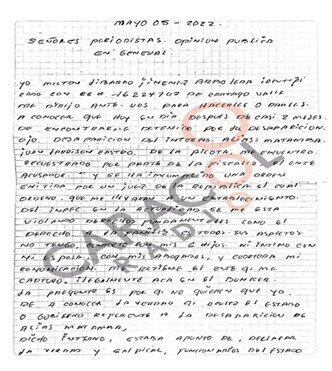 MAYO 05 - 2022.
SEÑORES PERIODISTAS. OPINION PUBLICA
EN GENERAL
YO MILTON JIMENEZ IDENTIFI
CADO CON CC # 16224702 DE CARTAGO VALLE
ME DIRIJO ANTE UDS. PARA HACERLES O DARLES
A CONOCER QUE HOY EN DIA DESPUES DE CASI 2 MESES
DE ENCONTRARME DETENIDO POR LA DESAPARICION
DEL INTERNO. ALIAS MATAMBA.
JUAN LARRISON CASTRO. DE LA PICOTA ME ENCUENTRO.
SECUESTRADO POR PARTE DE LA FISCALIA ENTE
ACUSADOR. Y SE HA INCUMPLIDO UNA ORDEN
EMITIDA POR UN JUEZ DE LA REPUBLICA EL CUAL
ORDENO. QUE ME LLEVARAN A UN ESTABLECIMIENTO.
DEL INPEC EN LA ACTUALIDAD SE ME ESTA
VIOLANDO DERECHOS FUNDAMENTALES COMO EL
DERECHO A LA FAMILIA EN TODOS SUS ASPECTOS
NO TENGO. CONTACTO CON MIS 6 HIJOS NI INTIMO CON
MI ESPOSA. CON MIS ABOGADOS, Y COARTADA MI
COMUNICACION. ME RETIENE EL ENTE QUE ME
CAPTURO. ILEGALMENTE ACA EN EL BUNKER.
LA PREGUNTA ES POR QUE NO QUIEREN QUE YO.
DE A CONOCER LA VERDAD QUE OCULTA EL ESTADO
O GOBIERNO REFERENTE A LA DESAPARICION DE
ALIAS MATAMBA,
DICHO INTERNO, ESTABA APUNTO DE, DECLARAR
LA VERDAD Y SALPICAR, FUNCIONARIOS DEL ESTADO
CARACOL
RADIO